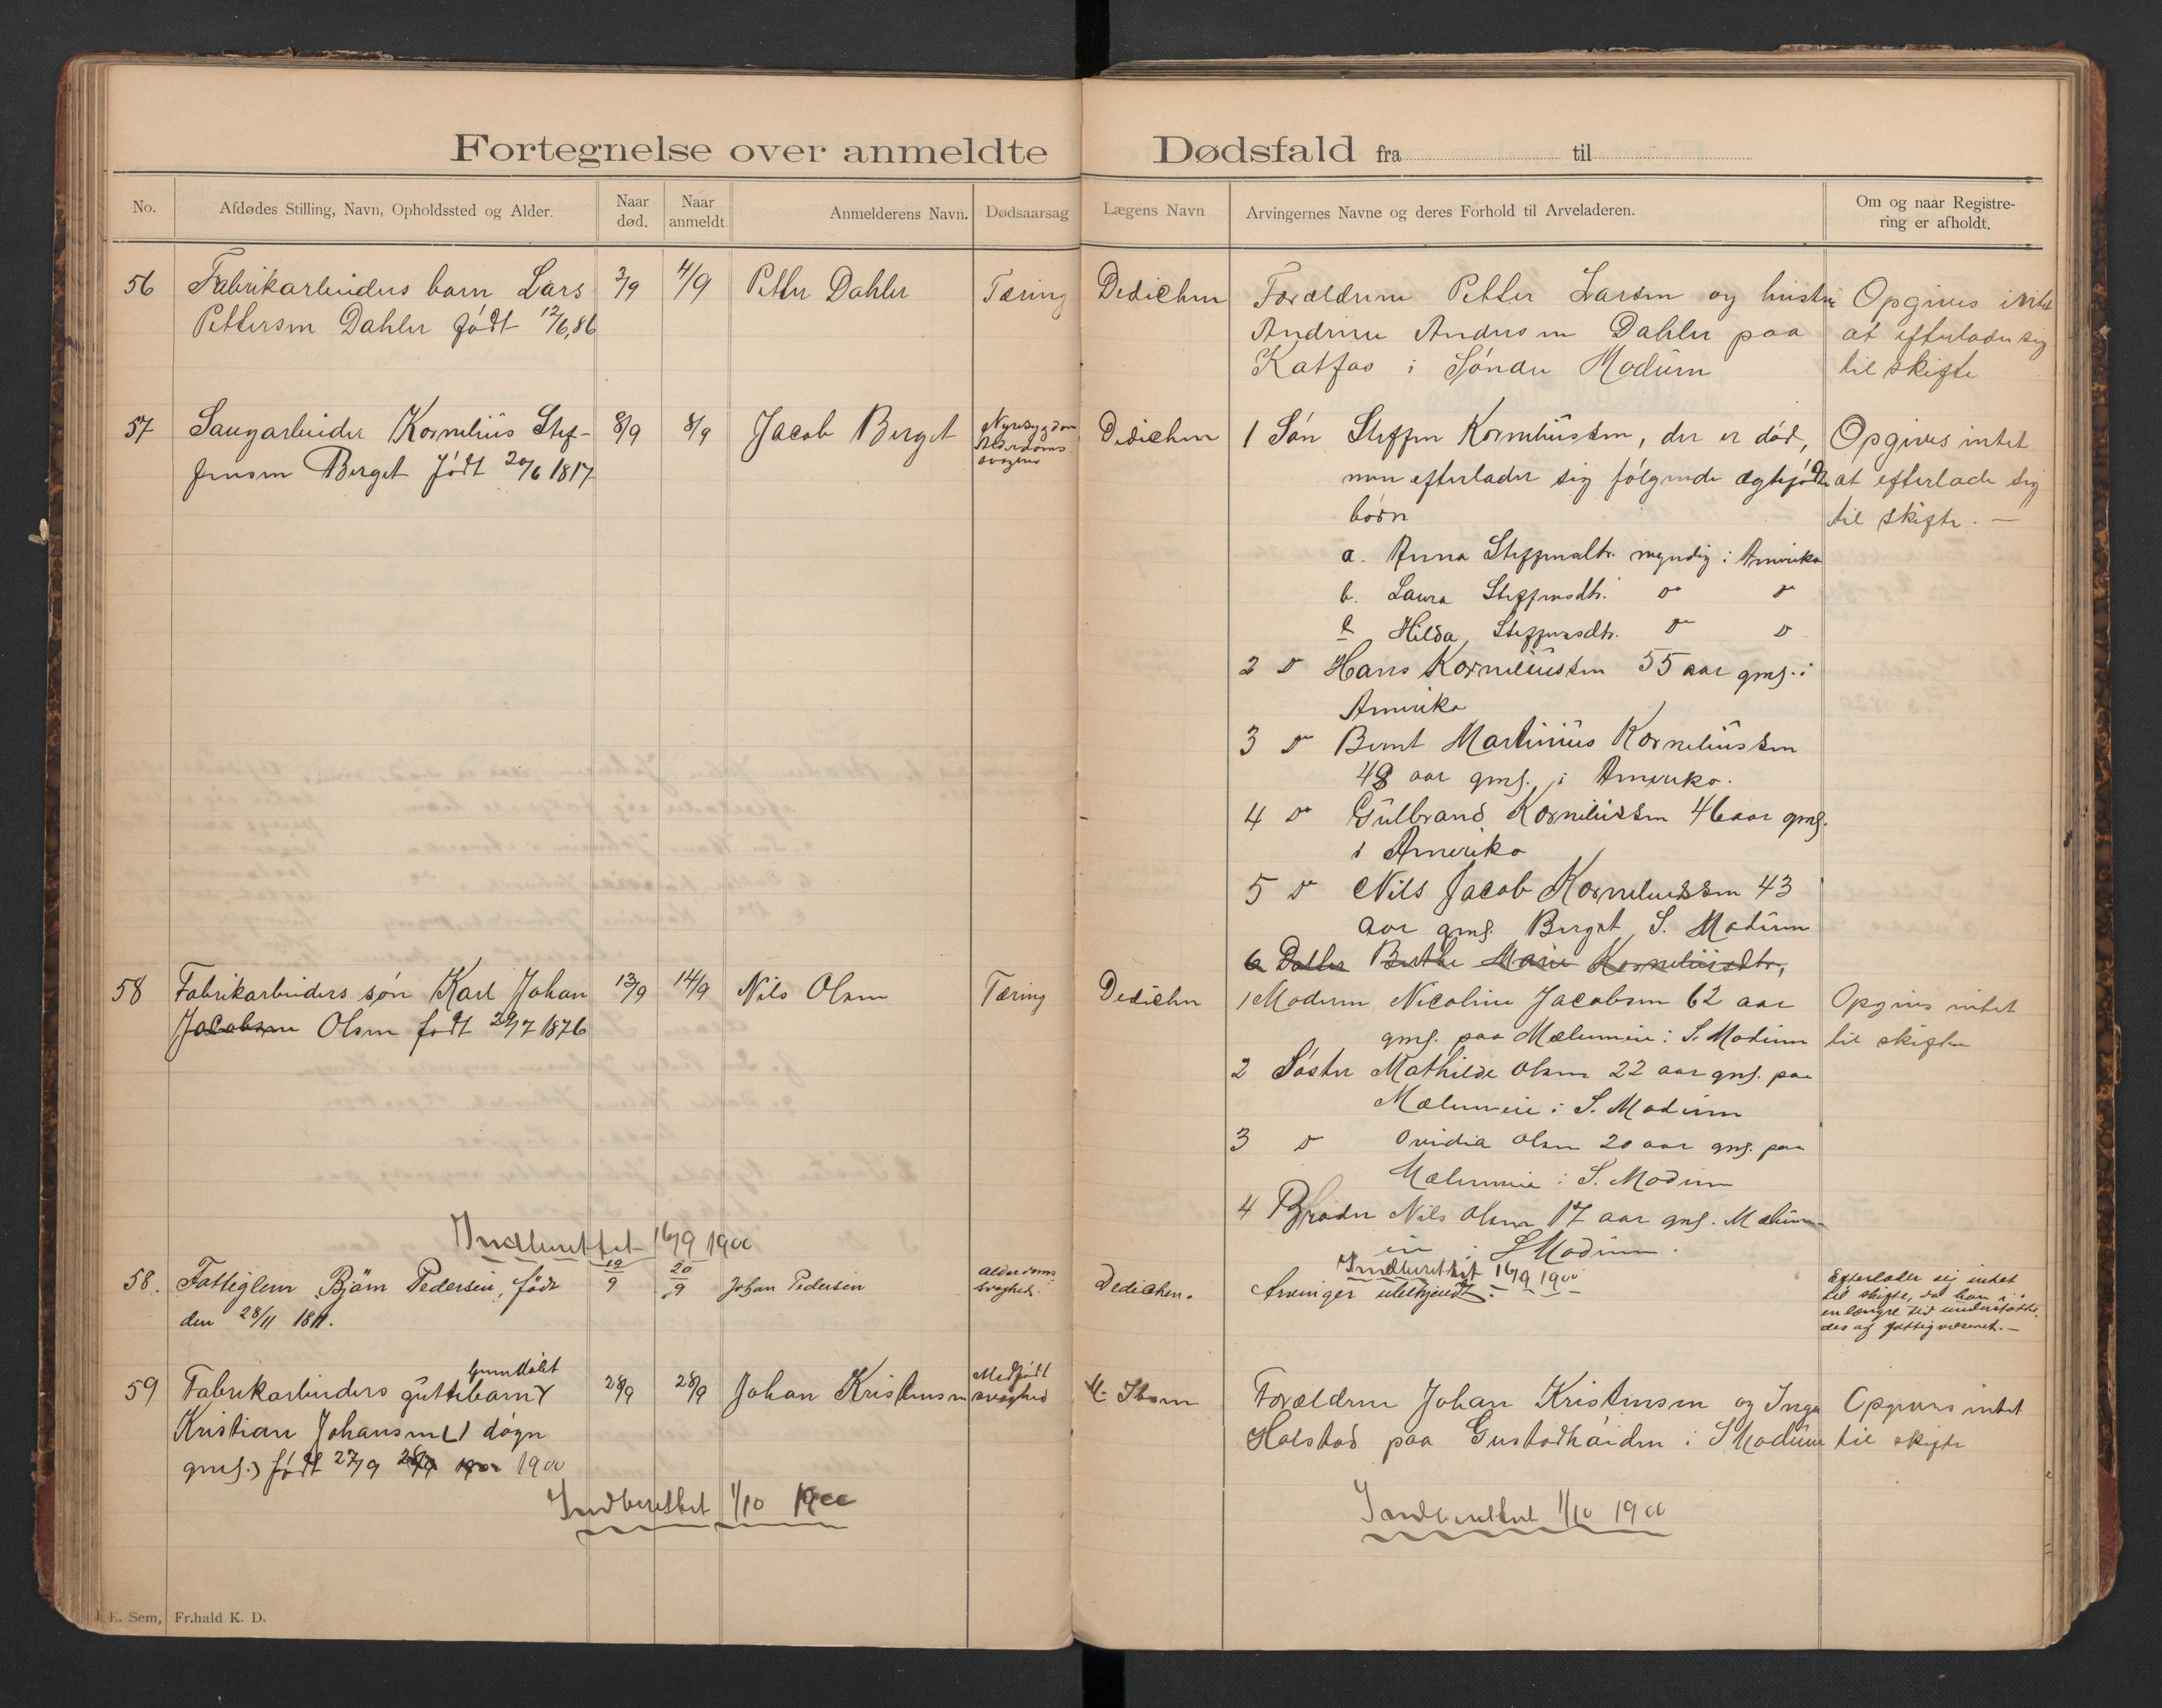 Fortegnelse over anmeldte Dødsfald fra til
No. Afdødes Stilling, Navn, Opholdssted og Alder. Naar død. Naar anmeldt. Anmelderens Navn. Dødsaarsag Lægens Navn Arvingernes Navne og deres Forhold til Arveladeren. Om og naar Registrering er afholdt.
56 Fabrikarbeiders barn Lars 3/9 4/9 Petter Dahler Tæring Dedichen Forældrene Petter Larsen og hustru Opgives intet
Pettersen Dahler født 12/6,86 Andrine Andersen Dahler paa at efterlade sig
Katfos i Søndre Modum til skifte
57 Saugarbeider Kornelius Stef- 8/9 8/9 Jacob Berget Nyresygdom Dedichen 1 Søn Steffen Korneliussen, der er død, Opgives intet
Alderdoms
svaghed
fensen Berget født 20/6 1817 men efterlader sig følgende ægtefødte at efterlade sig
børn til skifte. —
a. Anna Steffensdtr. myndig i Amerika
b. Laura Steffensdtr. do do
c Hilda Steffensdtr. do do
2 do Hans Korneliussen 55 aar gml. i
Amerika
3 do Bernt Martinius Korneliussen
48 aar gml. i Amerika.
4 do Gulbrand Korneliussen 46 aar gml.
i Amerika
5 do Nils Jacob Korneliussen 43
aar gml. Berget S. Modum
6 Datter Berthe Marie Korneliusdtr,
58 Fabrikarbeiders søn Karl Johan 13/9 14/9 Nils Olsen Tæring Dedichen 1 Moderen Nicoline Jacobsen 62 aar Opgives intet
Jacobsen Olsen født 29/7 1876 gml. paa Mælumeie i S. Modum til skifte
2 Søster Mathilde Olsen 22 aar gml. paa
Mælumeie i S. Modum
3 do Ovidia Olsen 20 aar gml. paa
Mælumeie i S. Modum
4 Broder Nils Olsen 17 aar gml. Mælum-
eie i S Modum.
Indberettet 16/9 1900 Indberettet 16/9 1900
58. Fattiglem Bjørn Pedersen, født 19/9 20/9 Johan Pedersen Alderdoms- Dedichen. Arvinger ubekjendt. Efterlader sig intet
svaghed. til skifte, da han i
den 28/11 1811. en længre tid understøtte-
des af fattigvæsenet. —
hjemdøbt
59 Fabrikarbeiders guttebarn 28/9 28/9 Johan Kristensen Medfødt svaghed Forældrene Johan Kristensen og Inga Opgives intet
Kristian Johansen (1 døgn Halstad paa i S Modum til skifte
gml.) født 27/9 28/9 1900
Indberettet 1/10 1900 Indberettet 1/10 1900
E. Sem, Fr.hald K. D.